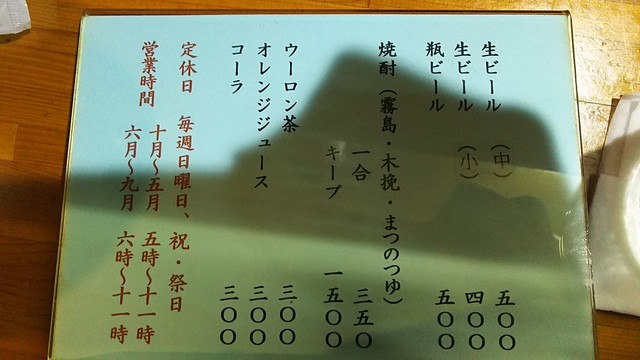 生ビール（中）　五〇〇
生ビール（小）　四〇〇
瓶ビール　五〇〇
焼酎（霧島・木挽・まつのつゆ）
一合　三五〇
キープ　一五〇〇
ウーロン茶　三〇〇
オレンジジュース　三〇〇
コーラ　三〇〇
定休日　毎週日曜日、祝・祭日
営業時間　十月～五月　五時～十一時
六月～九月　六時～十一時